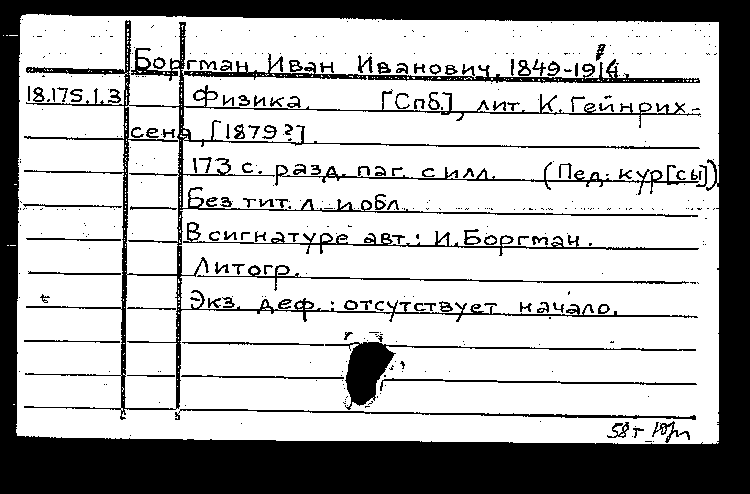 Боргман, Иван Иванович, 1849-1914.
18.175.1.3 Физика. [Спб.], лит. К. Гейнрих-
сена, [1879?].
173 с. разд. паг. с илл. (Пед. кур[сы])
Без тит. л. и обл.
В сигнатуре авт.: И. Боргман.
Литогр.
t Экз. деф.: отсутствует начало.
58т